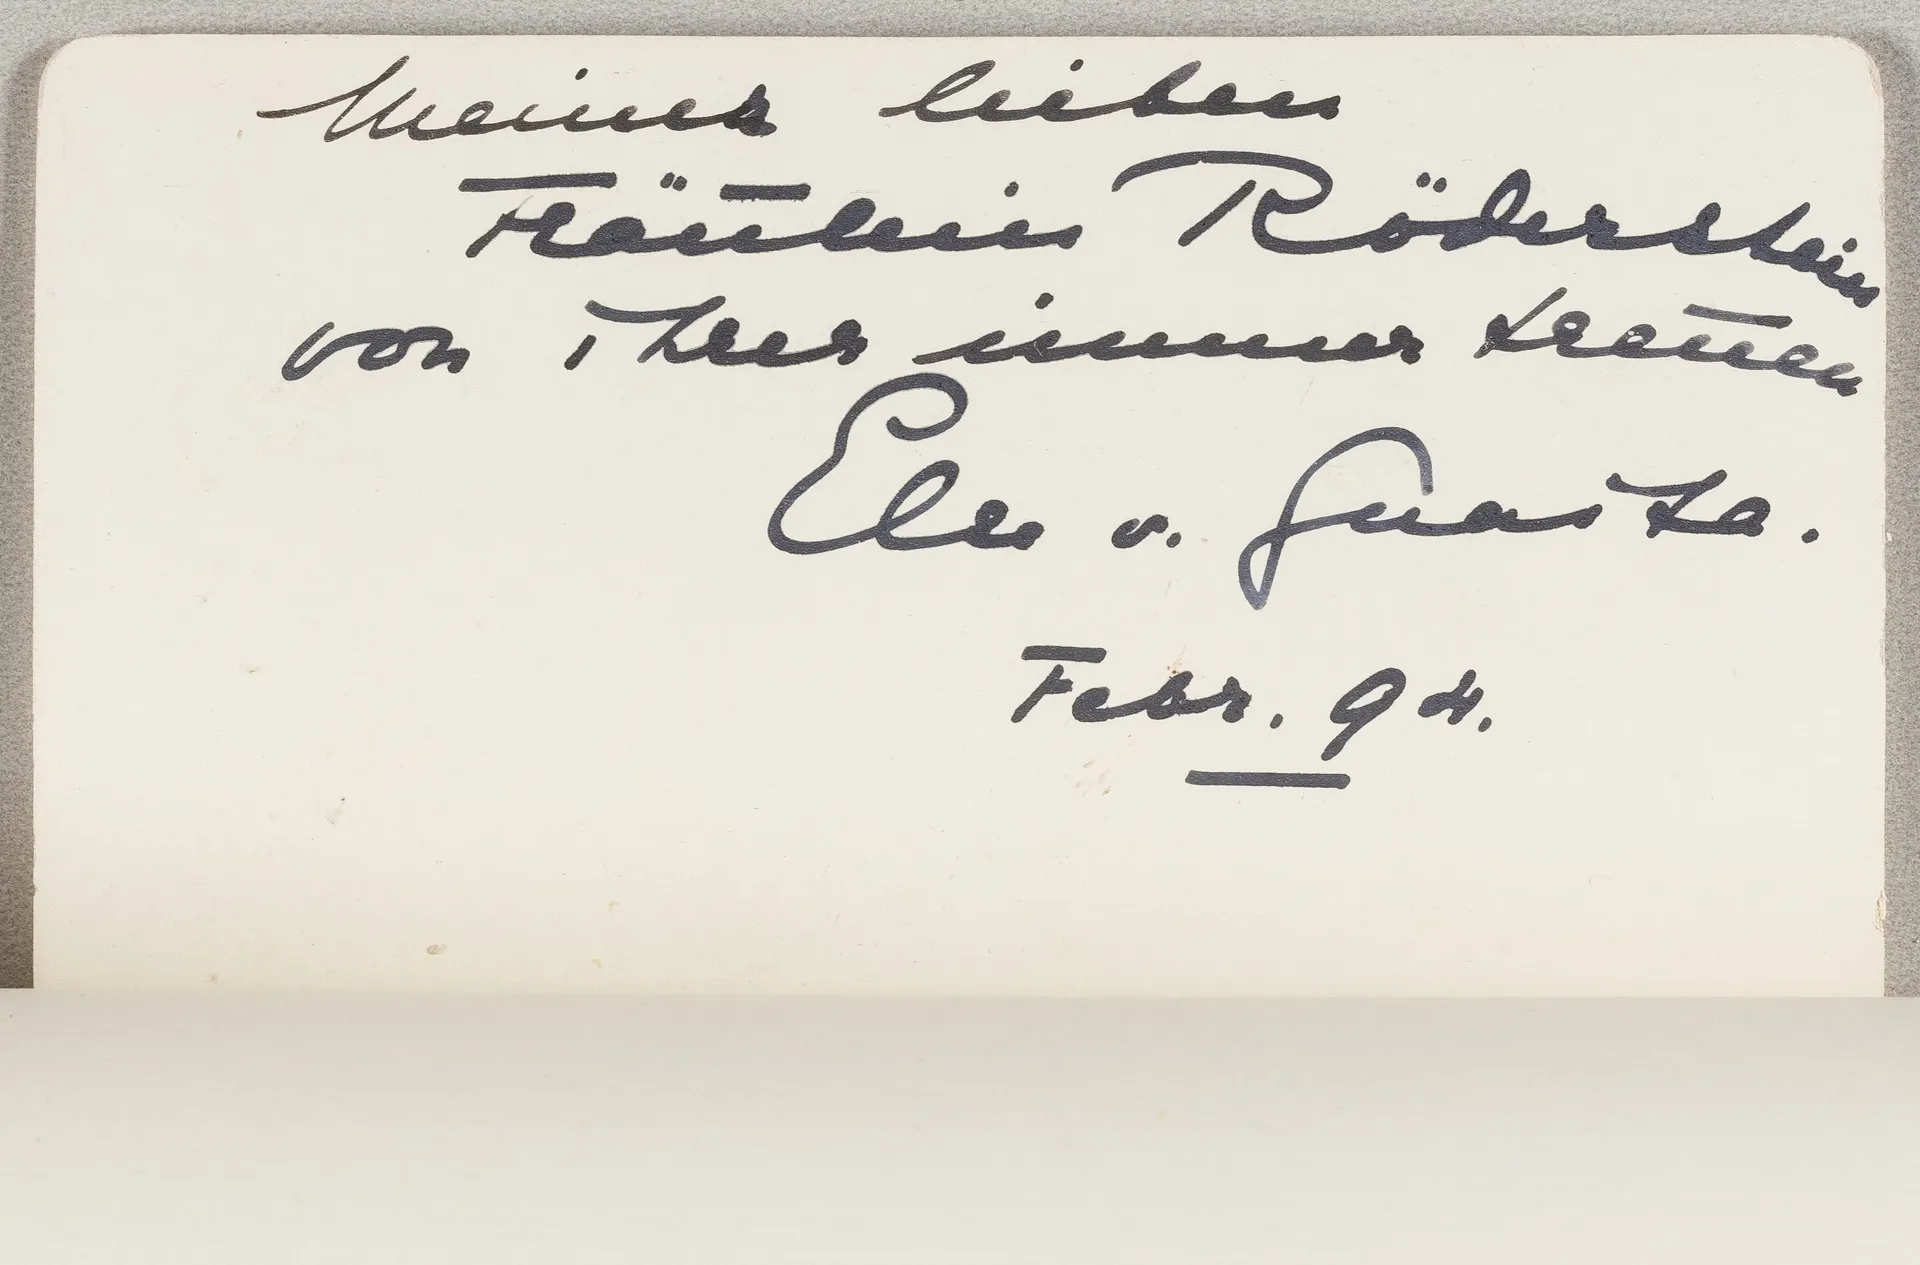 Meiner lieben
Fräulein Röderstein
von Ihrer immer treuen
v.
Febr. 94.